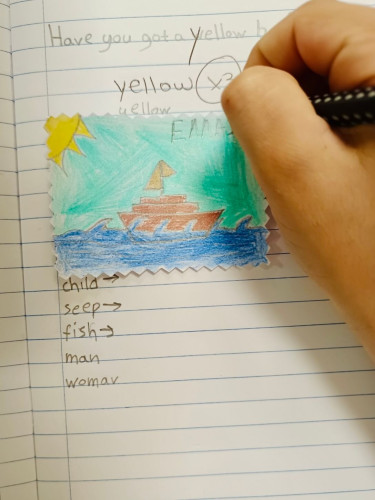 Have you got a yellow
y
yellow x3
yellow
child →
seep →
fish →
man
woman